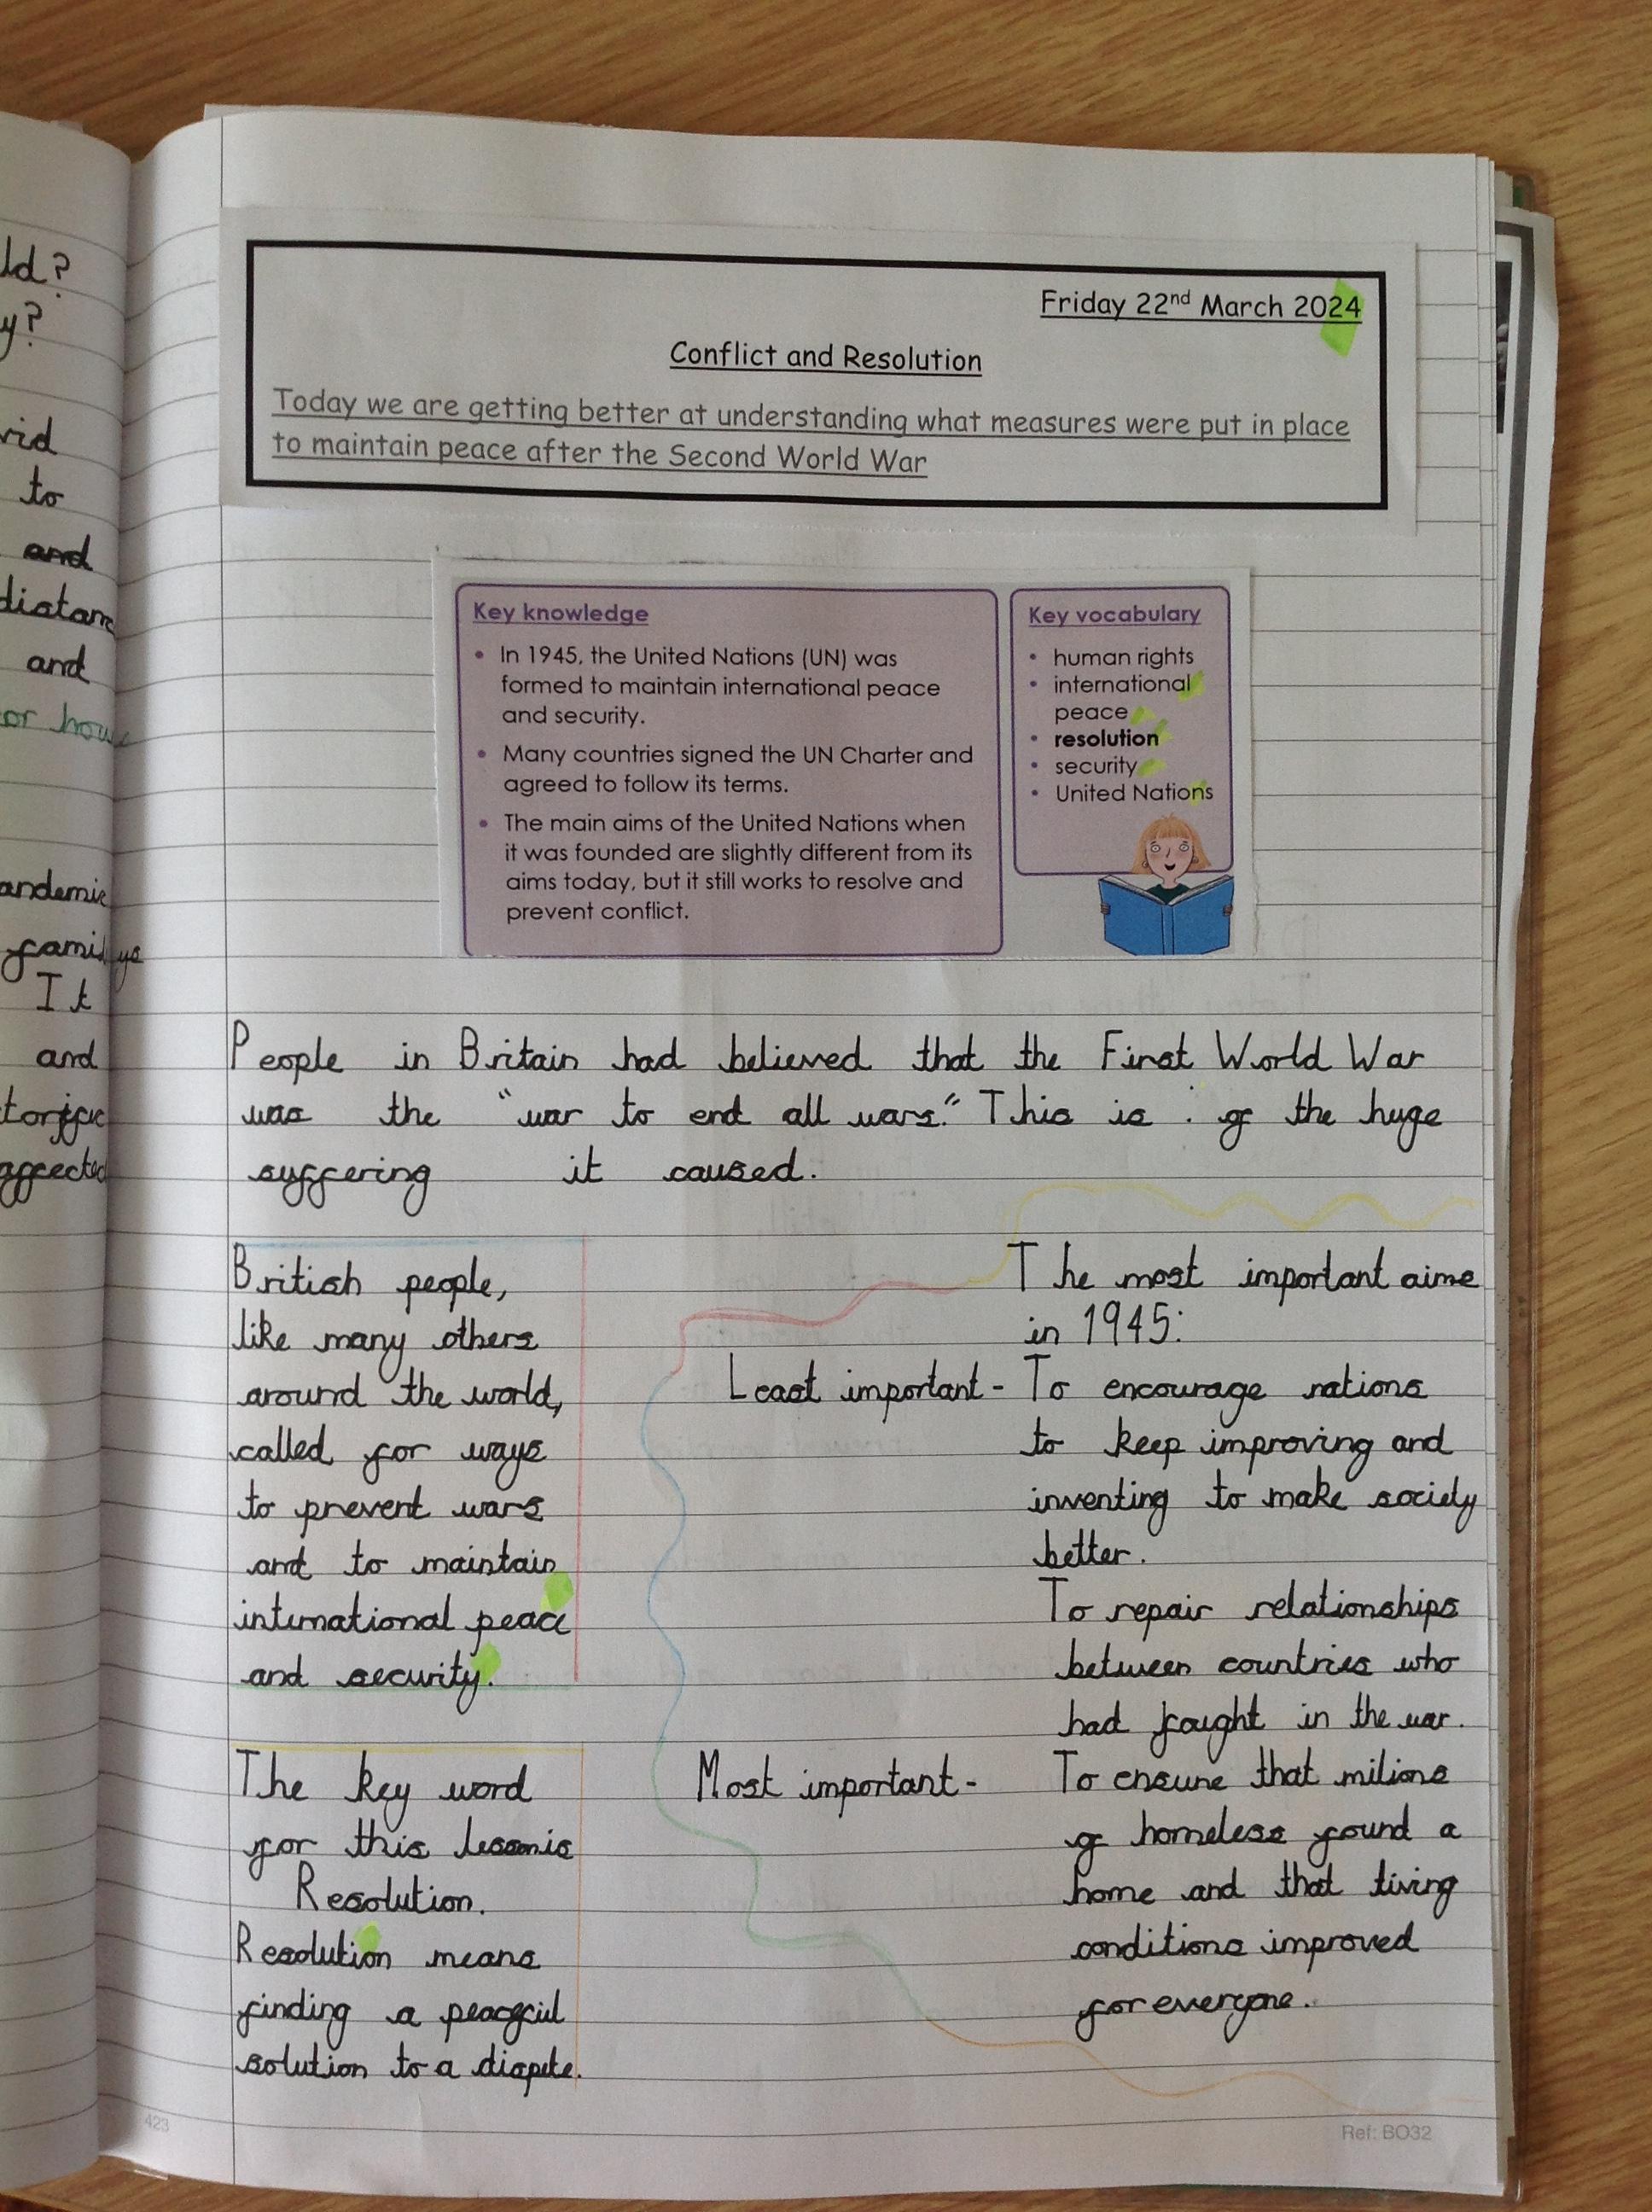 ld?
y?
vid
to
and
distan
and
or how
andemic
familys
It
and
affected
Friday 22nd March 2024
Conflict and Resolution
Today we are getting better at understanding what measures were put in place
to maintain peace after the Second World War
Key knowledge
• In 1945, the United Nations (UN) was
formed to maintain international peace
and security.
• Many countries signed the UN Charter and
agreed to follow its terms.
• The main aims of the United Nations when
it was founded are slightly different from its
aims today, but it still works to resolve and
prevent conflict.
Key vocabulary
• human rights
• international
peace
• resolution
• security
• United Nations
People in Britain had believed that the First World War
was the "war to end all wars." This is of the huge
suffering it caused.
British people,
like many others
around the world,
called for ways
to prevent wars
and to maintain
international peace
and security.
The key word
for this lesson is
Resolution.
Resolution means
finding a peaceful
solution to a dispute.
The most important aims
in 1945:
Least important - To encourage nations
to keep improving and
inventing to make society
better.
To repair relationships
between countries who
had fought in the war.
Most important - To ensure that milions
of homeless found a
home and that living
conditions improved
for everyone.
423
Ref: BO32